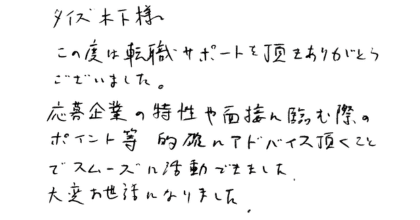 タイズ 木下様
この度は転職サポートを頂きありがとう
ございました。
応募企業の特性や面接に臨む際の
ポイント等 的確にアドバイス頂くこと
でスムーズに活動できました.
大変お世話になりました.